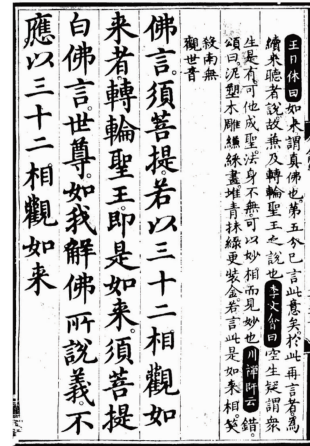 王日休曰如来謂真佛也第五分已言此意矣於此再言者為
續來聽者說故兼及轉輪聖王之說也李文會曰空生疑謂衆
生是有可他成聖法身不無可以妙相而見妙也川禪師云錯
頌曰泥塑木雕縑綵畫堆青抹綠更裝金若言此是如來相笑
殺南無
觀世音
佛言須菩提若以三十二相觀如
来者轉輪聖王即是如来須菩提
白佛言世尊如我解佛所說義不
應以三十二相觀如来